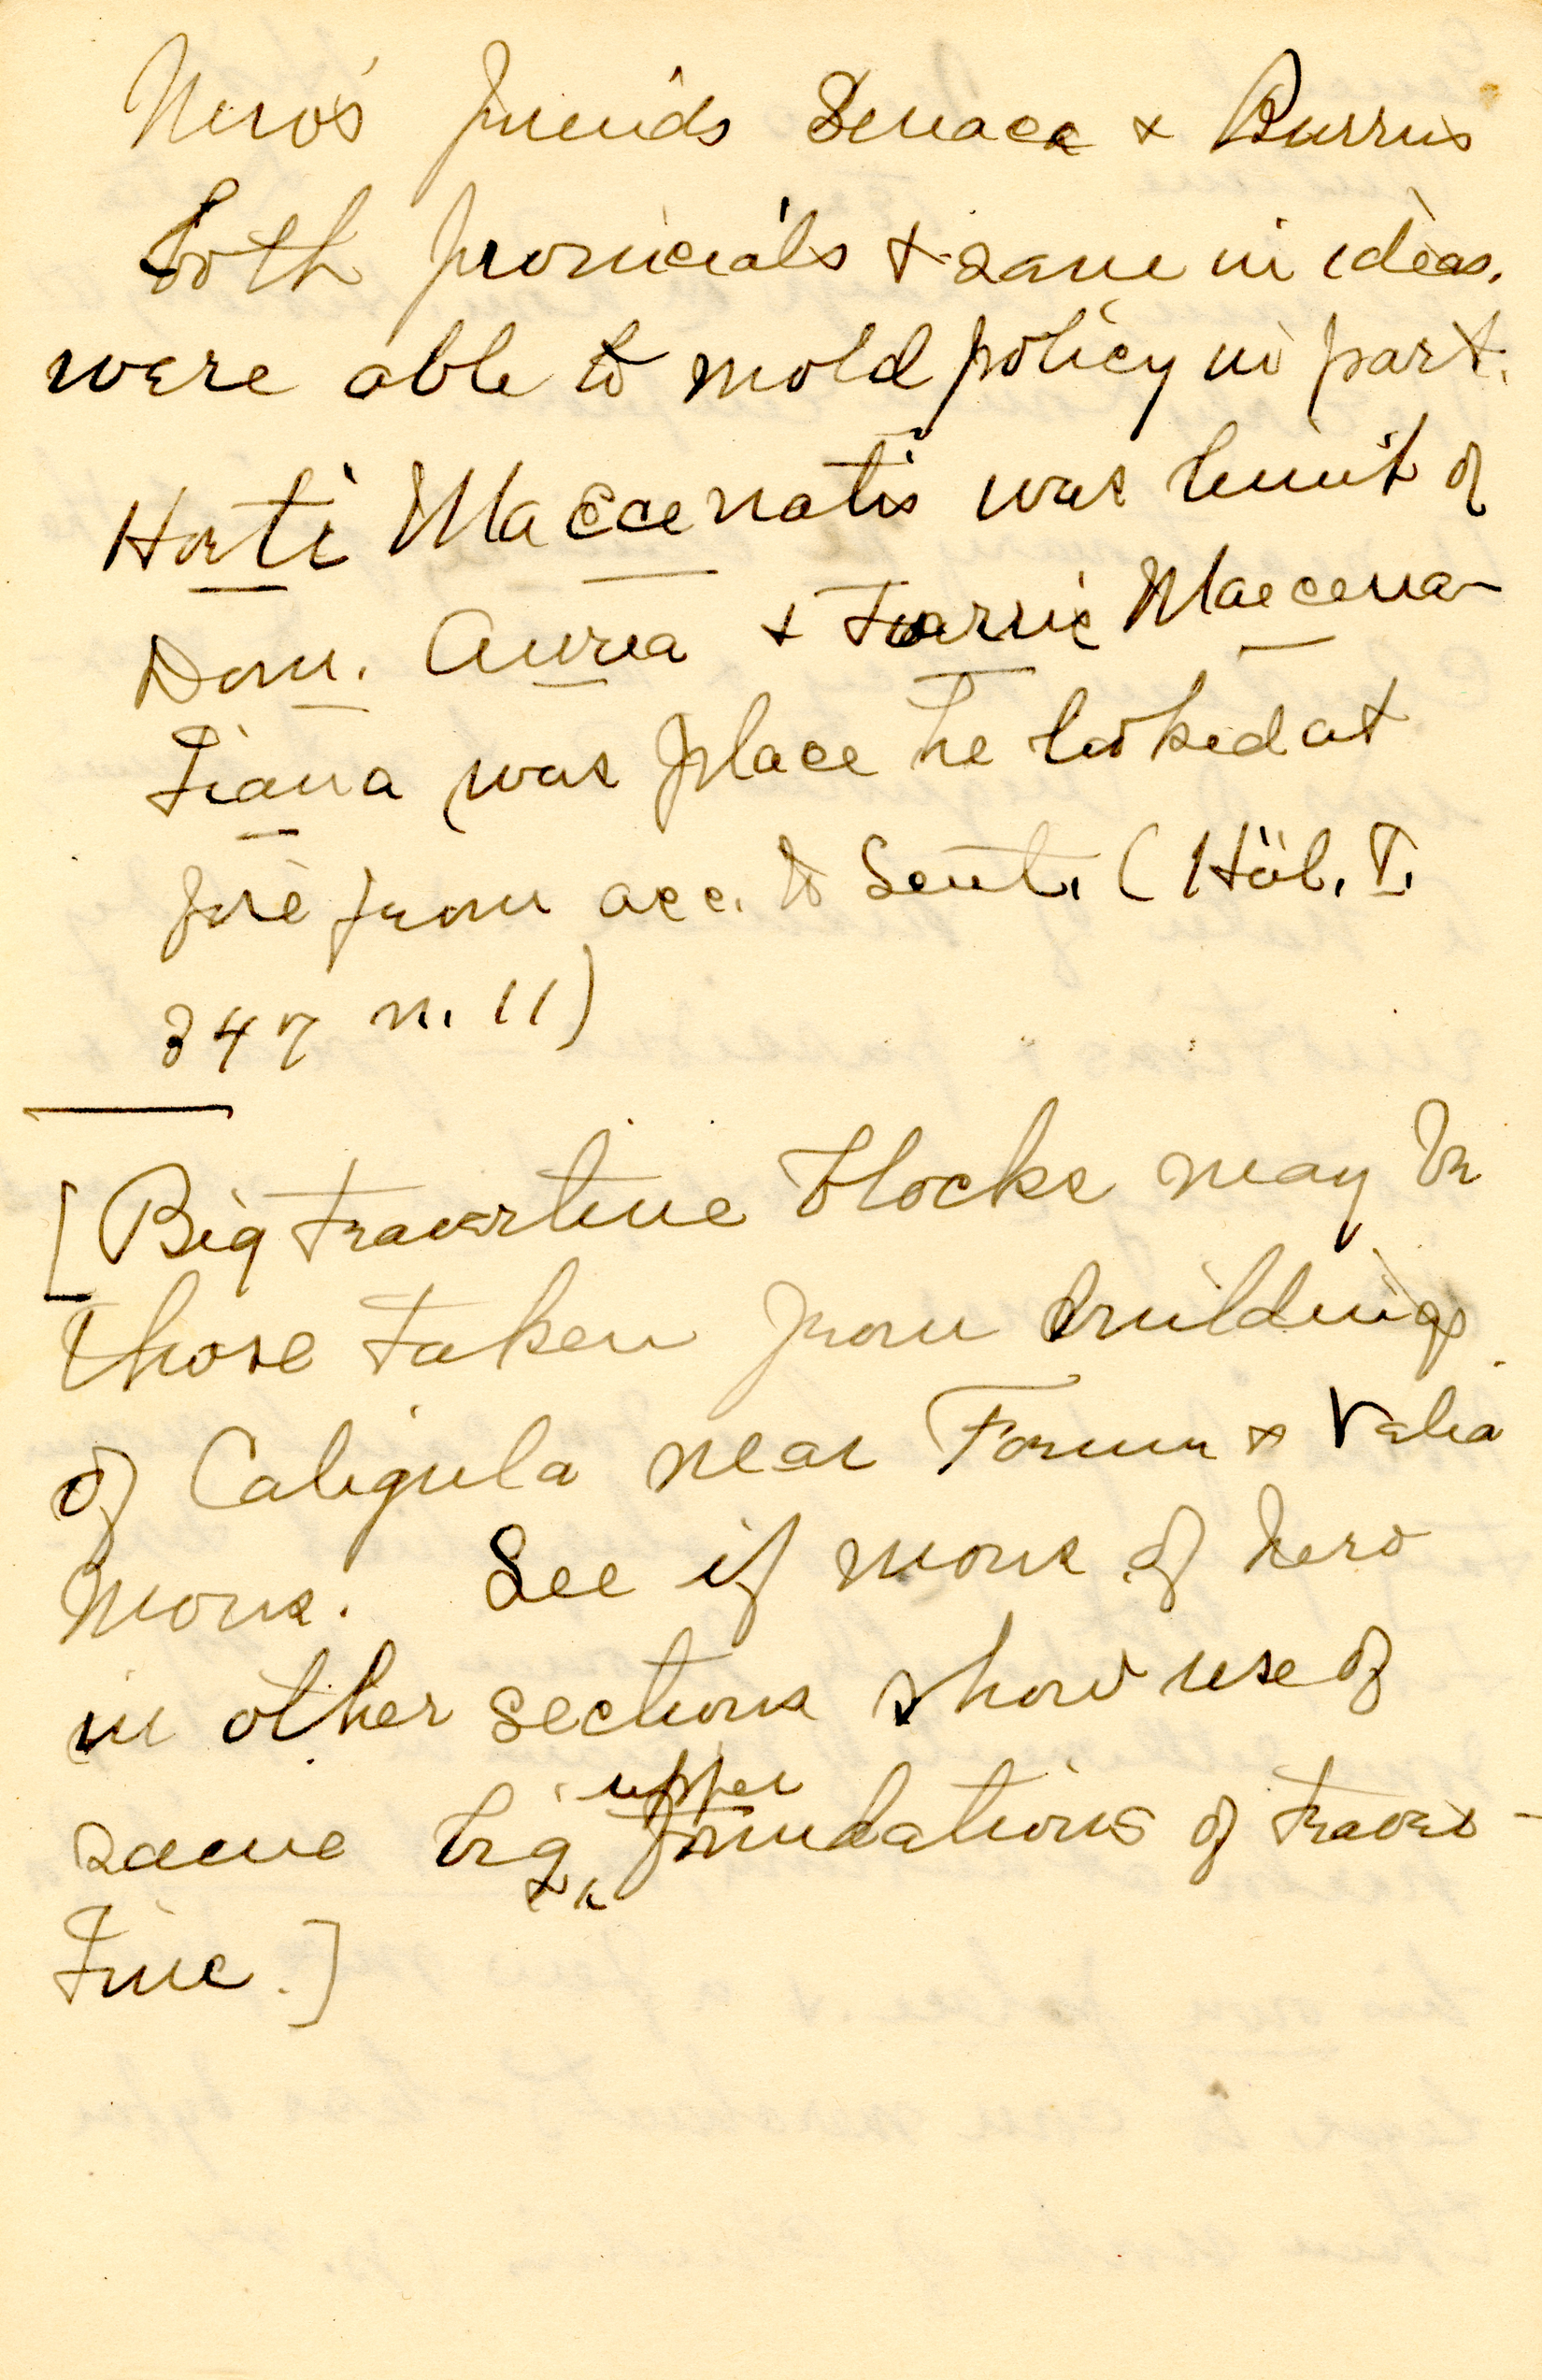 Nero's friends Senaca & Burrus
both provincials & sane in ideas.
were able to mold policy in part.
Horti Maecenatis was limit of
Dom. Aurea & Turris Maecena-
tiana was place he looked at
fire from acc. to Suet. (Hül. I.
347 n. 11)
[Big travertine blocks may be
those taken from buildings
of Caligula near Forum & Velia
mons. See if mons of Nero
in other sections show use of
same big upper foundations of traver-
tine.]